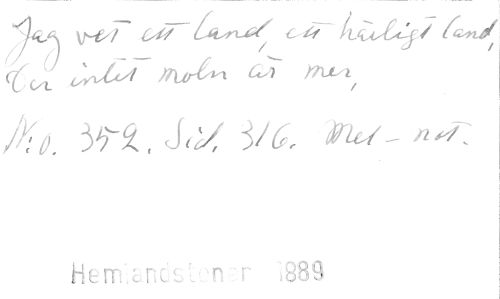 Jag vet ett land, ett härligt land,
Der intet moln är mer,
N:o. 352. Sid. 316. Mel - not.
Hemlandstoner 1889